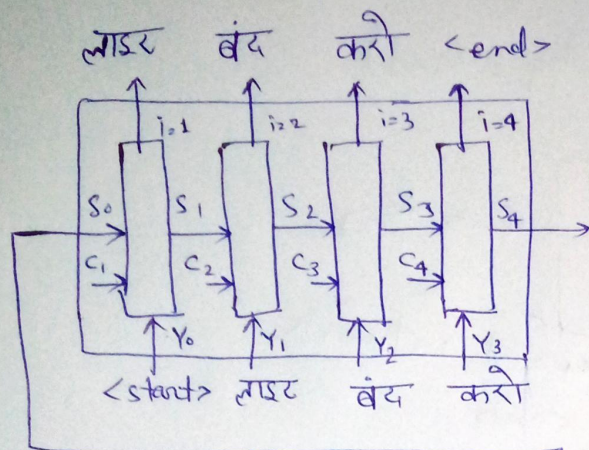 लाइट बंद करो <end>
i=1 i=2 i=3 i=4
S0 S1 S2 S3 S4
C1 C2 C3 C4
Y0 Y1 Y2 Y3
<start> लाइट बंद करो